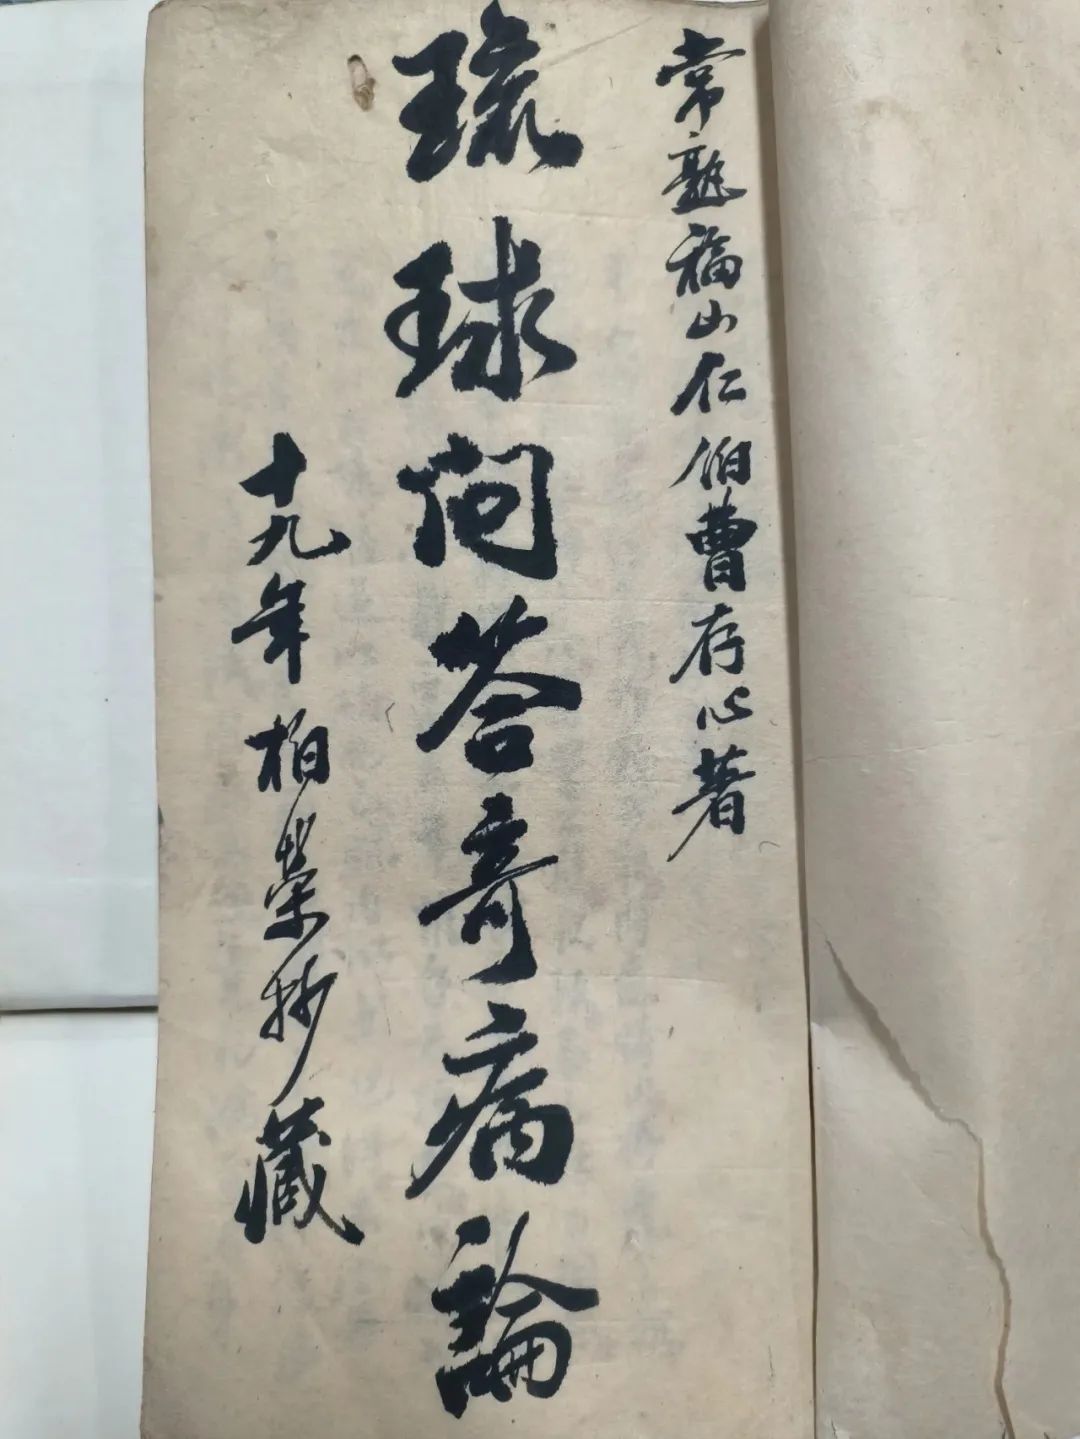 常熟福山仁伯曹存心著
琉球问答奇病論
十九年柏榮抄藏